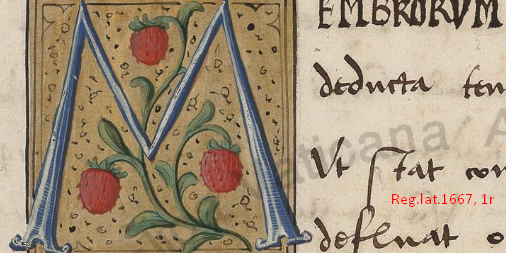 M EMBRORVM
deducta ten
Vt stat con
Reg.lat.1667, 1r
defluat o